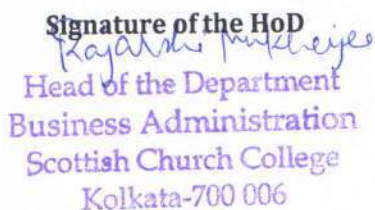 Signature of the HoD
Rajarshi Mukherjee
Head of the Department
Business Administration
Scottish Church College
Kolkata-700 006